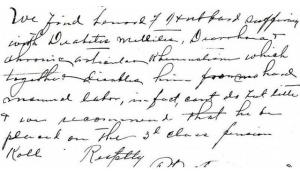 We find Leonard J Hubbard suffering
with Diabetes Mellites, Diarrhoea &
chronic articular Rheumatism which
together disables him for hard
manual labor, in fact, can't do but little
& we recommend that he be
placed on the 3d class pension
Roll Respctly